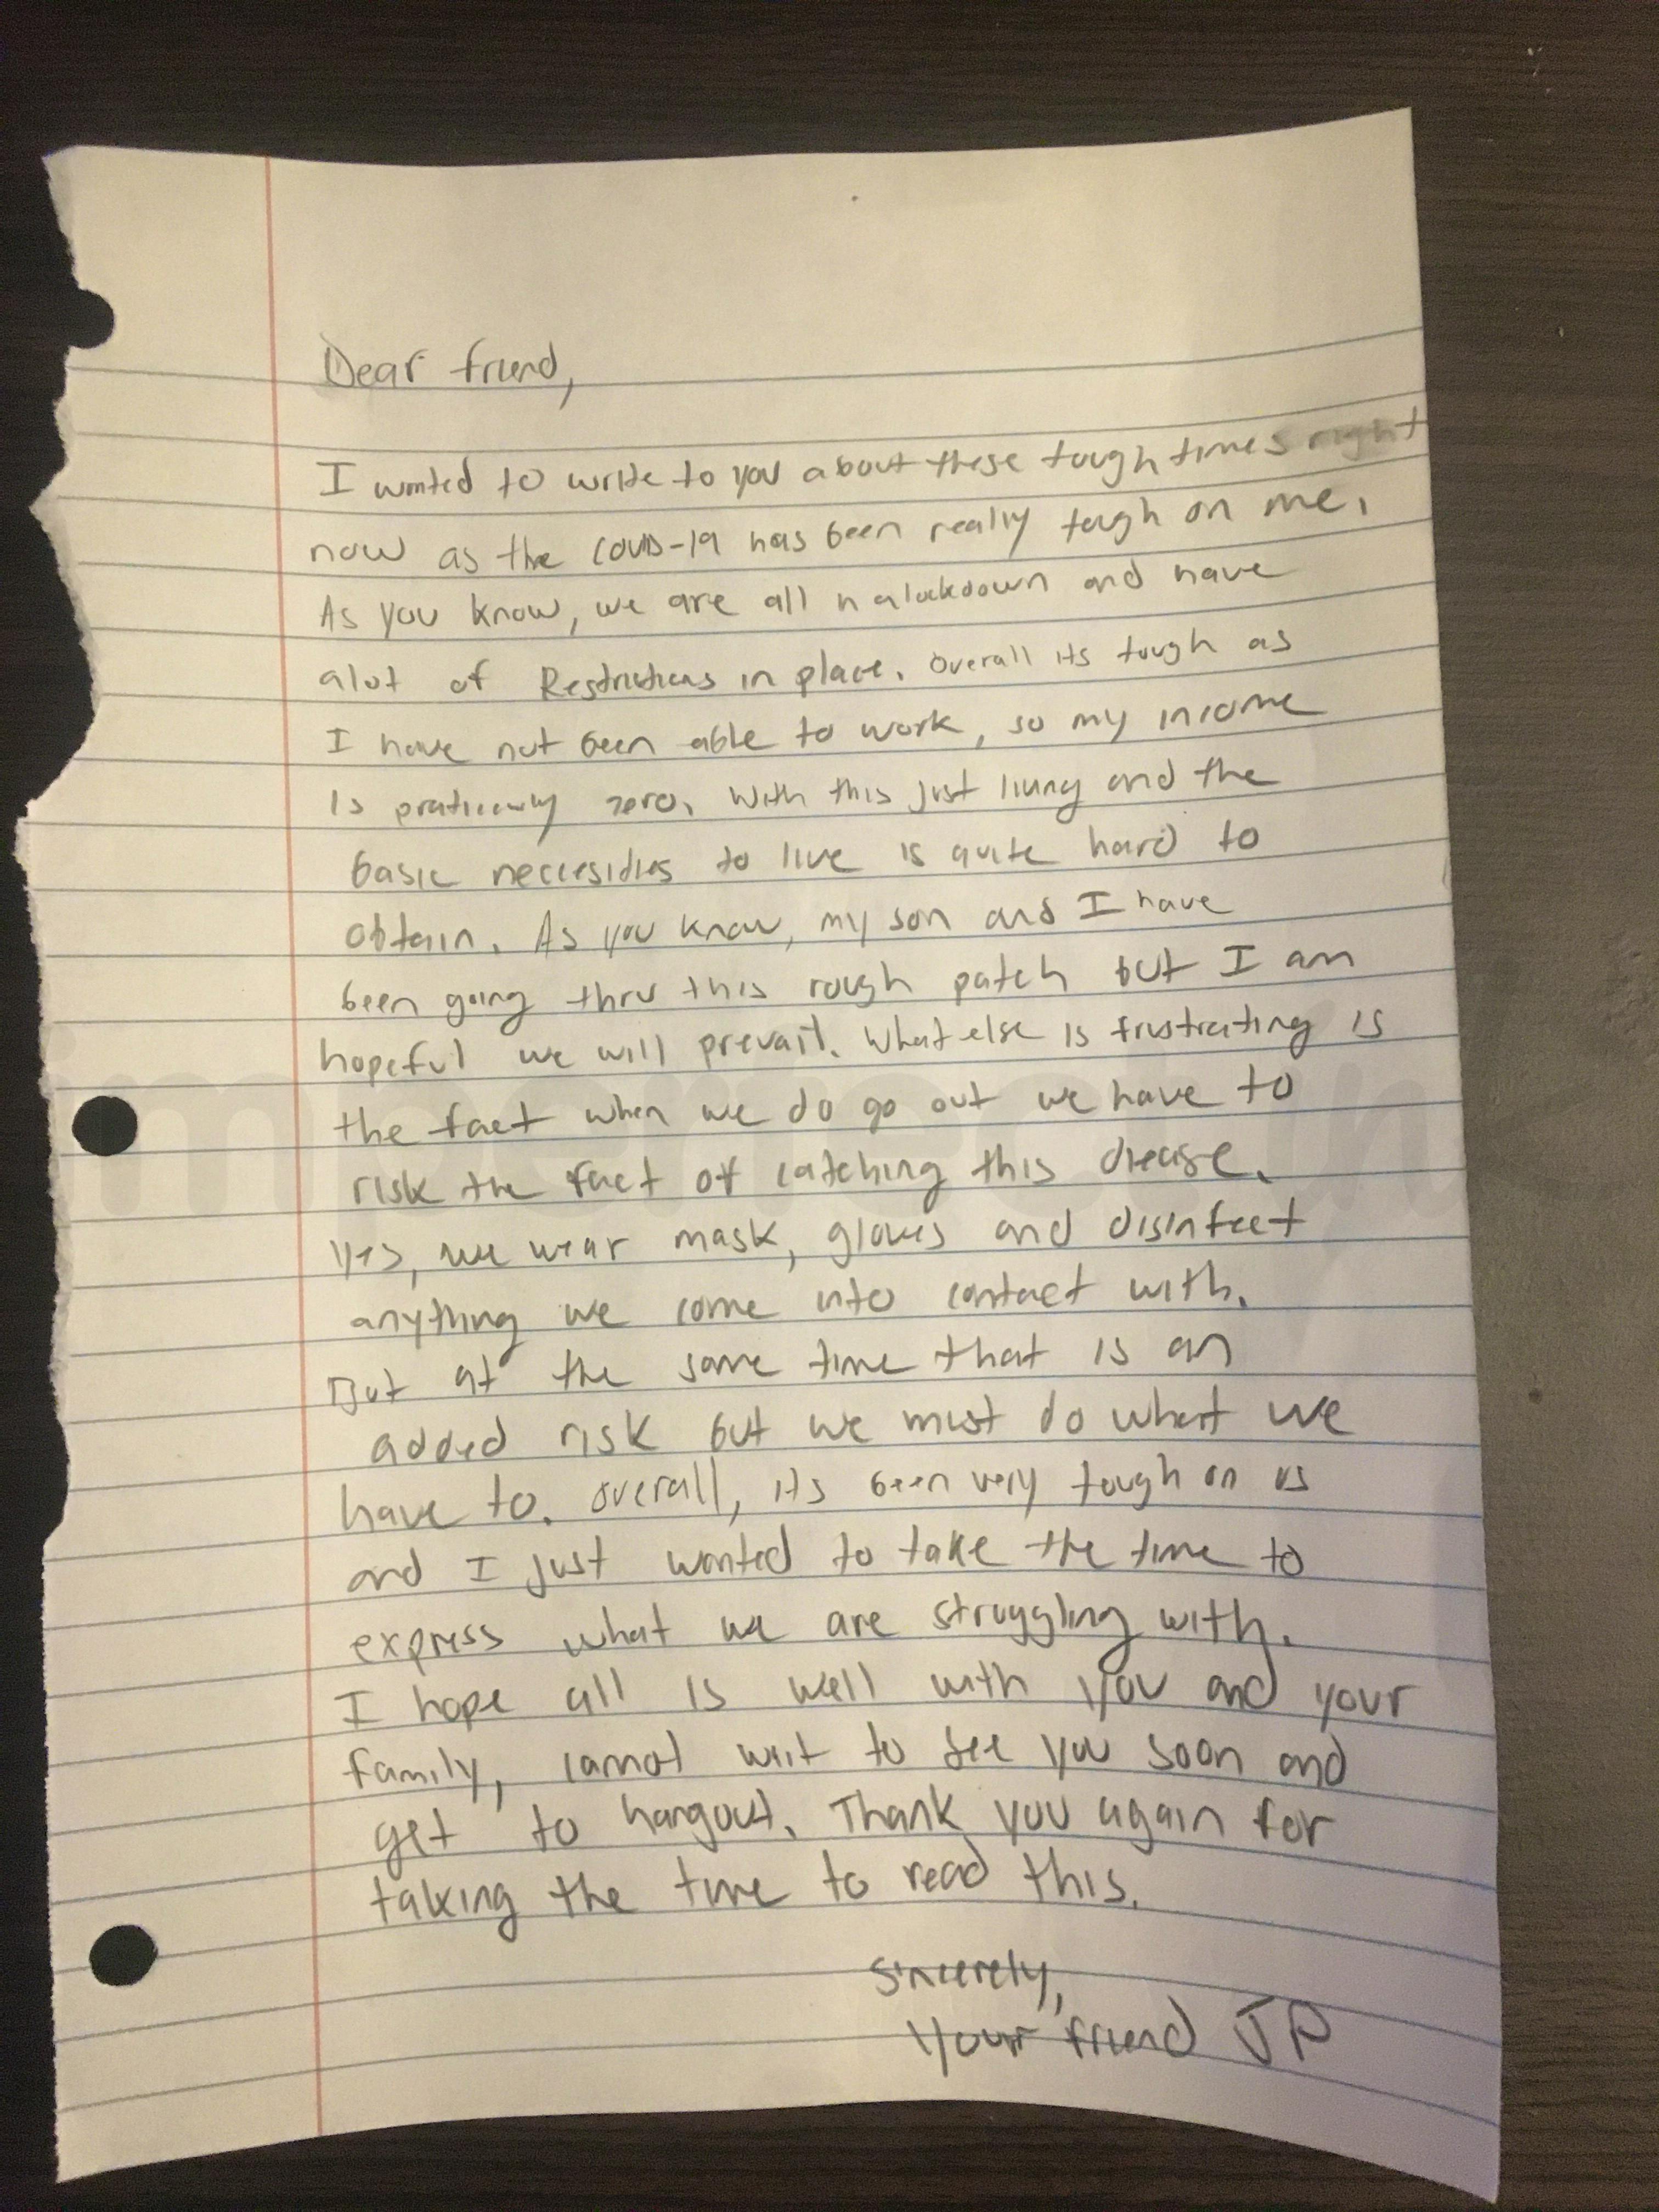 Dear friend,
I wanted to write to you about these tough times right
now as the COVID-19 has been really tough on me.
As you know, we are all in a lockdown and have
alot of Restrictions in place. Overall its tough as
I have not been able to work, so my income
is practically zero. With this just living and the
basic neccesities to live is quite hard to
obtain. As you know, my son and I have
been going thru this rough patch but I am
hopeful we will prevail. What else is frustrating is
the fact when we do go out we have to
risk the fact of catching this disease.
Yes, we wear mask, gloves and disinfect
anything we come into contact with.
But at the same time that is an
added risk but we must do what we
have to. Overall, its been very tough on us
and I just wanted to take the time to
express what we are struggling with.
I hope all is well with you and your
family, cannot wait to see you soon and
get to hangout. Thank you again for
taking the time to read this.
Sincerely,
Your friend JP